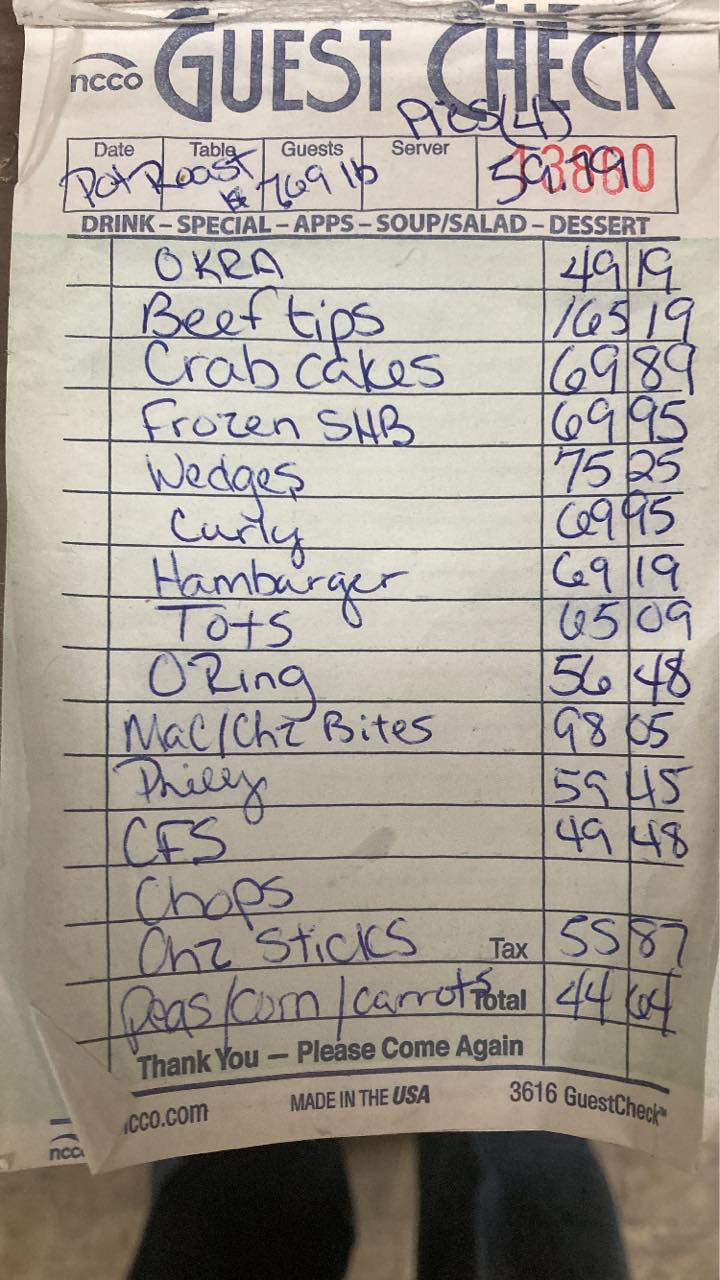 ncco GUEST CHECK
Pies (4)
Date Table Guests Server
Pot Roast 7.69 lb 59.79 13880
DRINK – SPECIAL – APPS – SOUP/SALAD – DESSERT
OKRA 49 19
Beef tips 165 19
Crab cakes 69 89
Frozen SHB 69 95
Wedges 75 25
Curly 69 95
Hamburger 69 19
Tots 65 09
O Ring 56 48
Mac/Chz Bites 98 05
Philly 59 45
CFS 49 48
Chops
Chz Sticks Tax 55 87
Peas/Corn/carrots Total 44 64
Thank You – Please Come Again
ncco.com MADE IN THE USA 3616 GuestCheck™
ncco